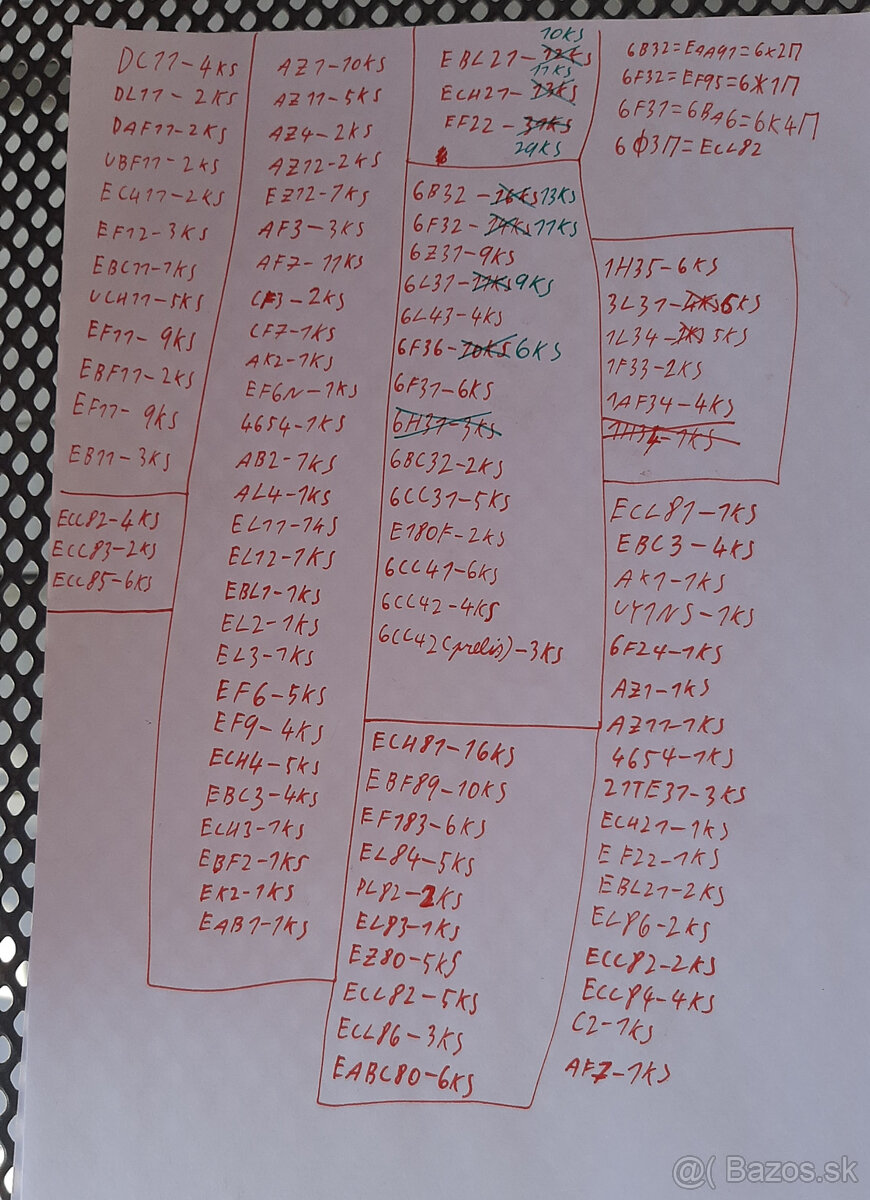 DC11-4KS
DL11-2KS
DAF11-2KS
UBF11-2KS
ECH11-2KS
EF12-3KS
EBC11-1KS
UCH11-5KS
EF11-9KS
EBF11-2KS
EF11-9KS
EB11-3KS
ECC82-4KS
ECC83-2KS
ECC85-6KS
AZ1-10KS
AZ11-5KS
AZ4-2KS
AZ12-2KS
EZ12-1KS
AF3-3KS
AF7-11KS
CF3-2KS
CF7-1KS
AK2-1KS
EF6N-1KS
4654-1KS
AB2-1KS
AL4-1KS
EL11-14S
EL12-1KS
EBL1-1KS
EL2-1KS
EL3-1KS
EF6-5KS
EF9-4KS
ECH4-5KS
EBC3-4KS
ECH3-1KS
EBF2-1KS
EK2-1KS
EAB1-1KS
10KS
EBL21-12KS
11KS
ECH21-13KS
EF22-31KS
29KS
6B32-16KS13KS
6F32-14KS11KS
6Z31-9KS
6L31-11KS9KS
6L43-4KS
6F36-10KS6KS
6F31-6KS
6H31-3KS
6BC32-2KS
6CC31-5KS
E180F-2KS
6CC41-6KS
6CC42-4KS
6CC42(prelis)-3KS
ECH81-16KS
EBF89-10KS
EF183-6KS
EL84-5KS
PL82-2KS
EL83-1KS
EZ80-5KS
ECL82-5KS
ECL86-3KS
EABC80-6KS
6B32=EAA91=6X2П
6F32=EF95=6Ж1П
6F31=6BA6=6K4П
6Ф3П=ECL82
1H35-6KS
3L31-4KS6KS
1L34-1KS5KS
1F33-2KS
1AF34-4KS
1H34-1KS
ECL81-1KS
EBC3-4KS
AK1-1KS
UY1NS-1KS
6F24-1KS
AZ1-1KS
AZ11-1KS
4654-1KS
21TE31-3KS
ECH21-1KS
EF22-1KS
EBL21-2KS
EL86-2KS
ECC82-2KS
ECC84-4KS
C2-1KS
AF7-1KS
@( Bazos.sk